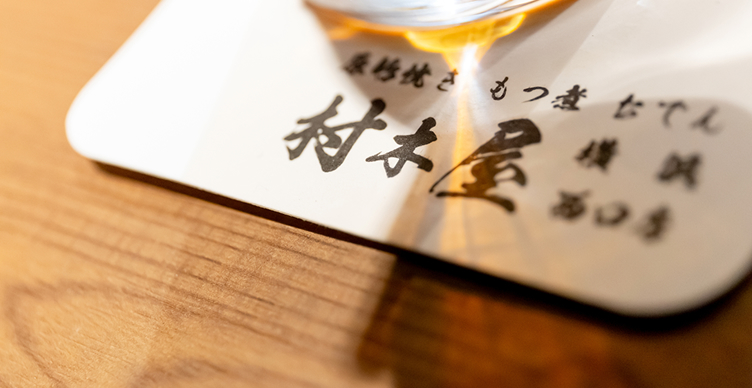 原価焼き もつ煮 おでん
村木屋
横浜
西口店